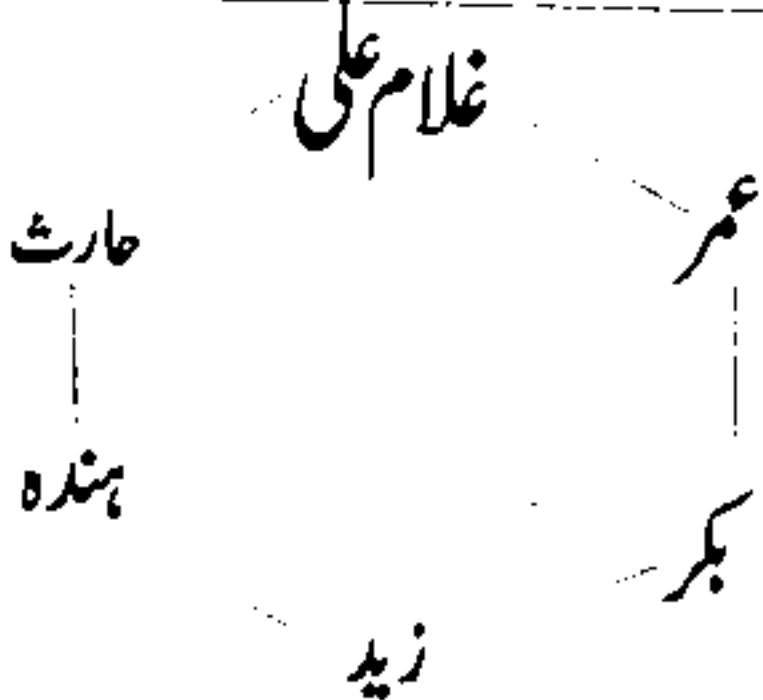 غلام علی
عمر
حارث
ہندہ
بکر
زید